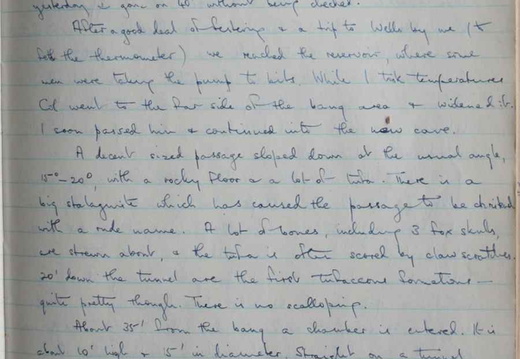 yesterday & gone on 40' without being checked.
After a good deal of festering & a trip to Wells by me (to
fetch the thermometer) we reached the reservoir, where some
men were taking the pump to bits. While I took temperatures
Col went to the far side of the bang area & widened it.
I soon passed him & continued into the new cave.
A decent sized passage sloped down at the usual angle,
15°-20°, with a rocky floor & a lot of tufa. There is a
big stalagmite which has caused the passage to be christened
with a rude name. A lot of bones, including 3 fox skulls,
are strewn about, & the tufa is often scored by claw scratches.
20' down the tunnel are the first tufaceous formations -
quite pretty though. There is no scalloping.
About 35' from the bang a chamber is entered. It is
about 10' high & 5' in diameter. Straight on a tunnel